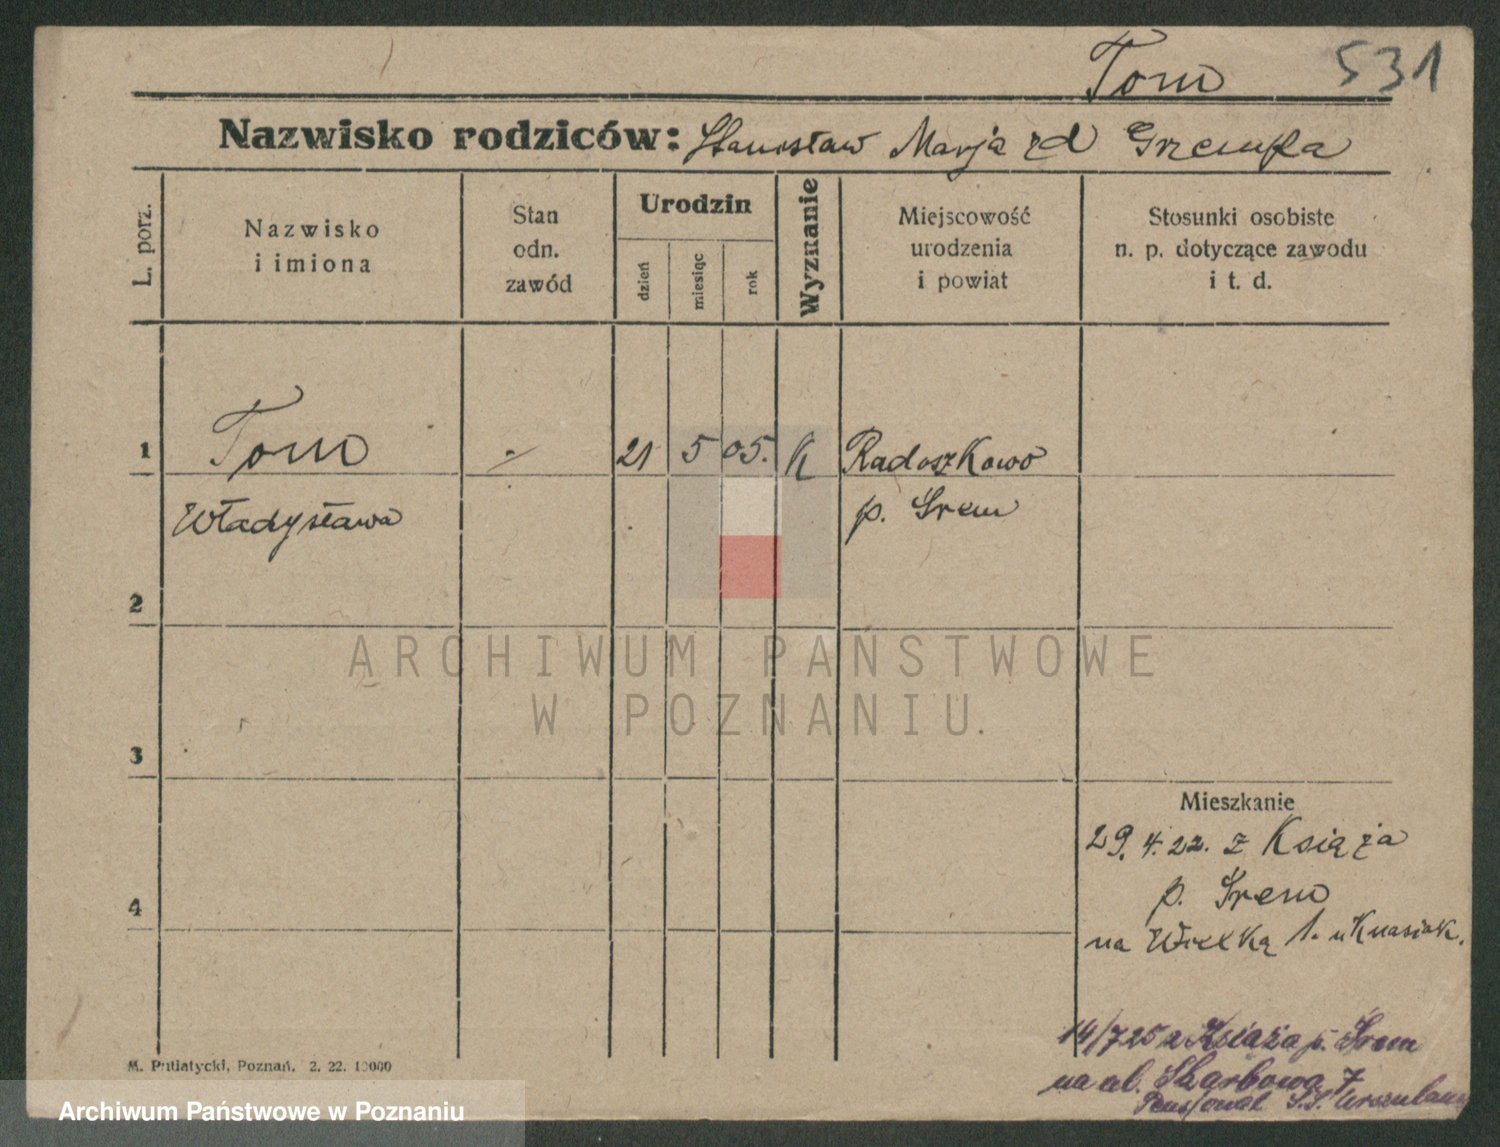 Tom 531
Nazwisko rodziców: Stanisław Marja zd Grzempka
L. porz.
Nazwisko
i imiona
Stan
odn.
zawód
Urodzin
dzień
miesiąc
rok
Wyznanie
Miejscowość
urodzenia
i powiat
Stosunki osobiste
n. p. dotyczące zawodu
i t. d.
1 Tom - 21 5 05. K Radoszkowo
Władysława p. Śrem
2
3
4
Mieszkanie
29. 4. 22. z Książa
p. Śrem
na Wielką 1. u Knasiak.
14/7 25 z Książa p. Śrem
na ul. Skarbowa 7
Pensjonat S.S. Urszulanek
M. Putiatycki, Poznań, 2. 22. 10000
ARCHIWUM PAŃSTWOWE
W POZNANIU
Archiwum Państwowe w Poznaniu